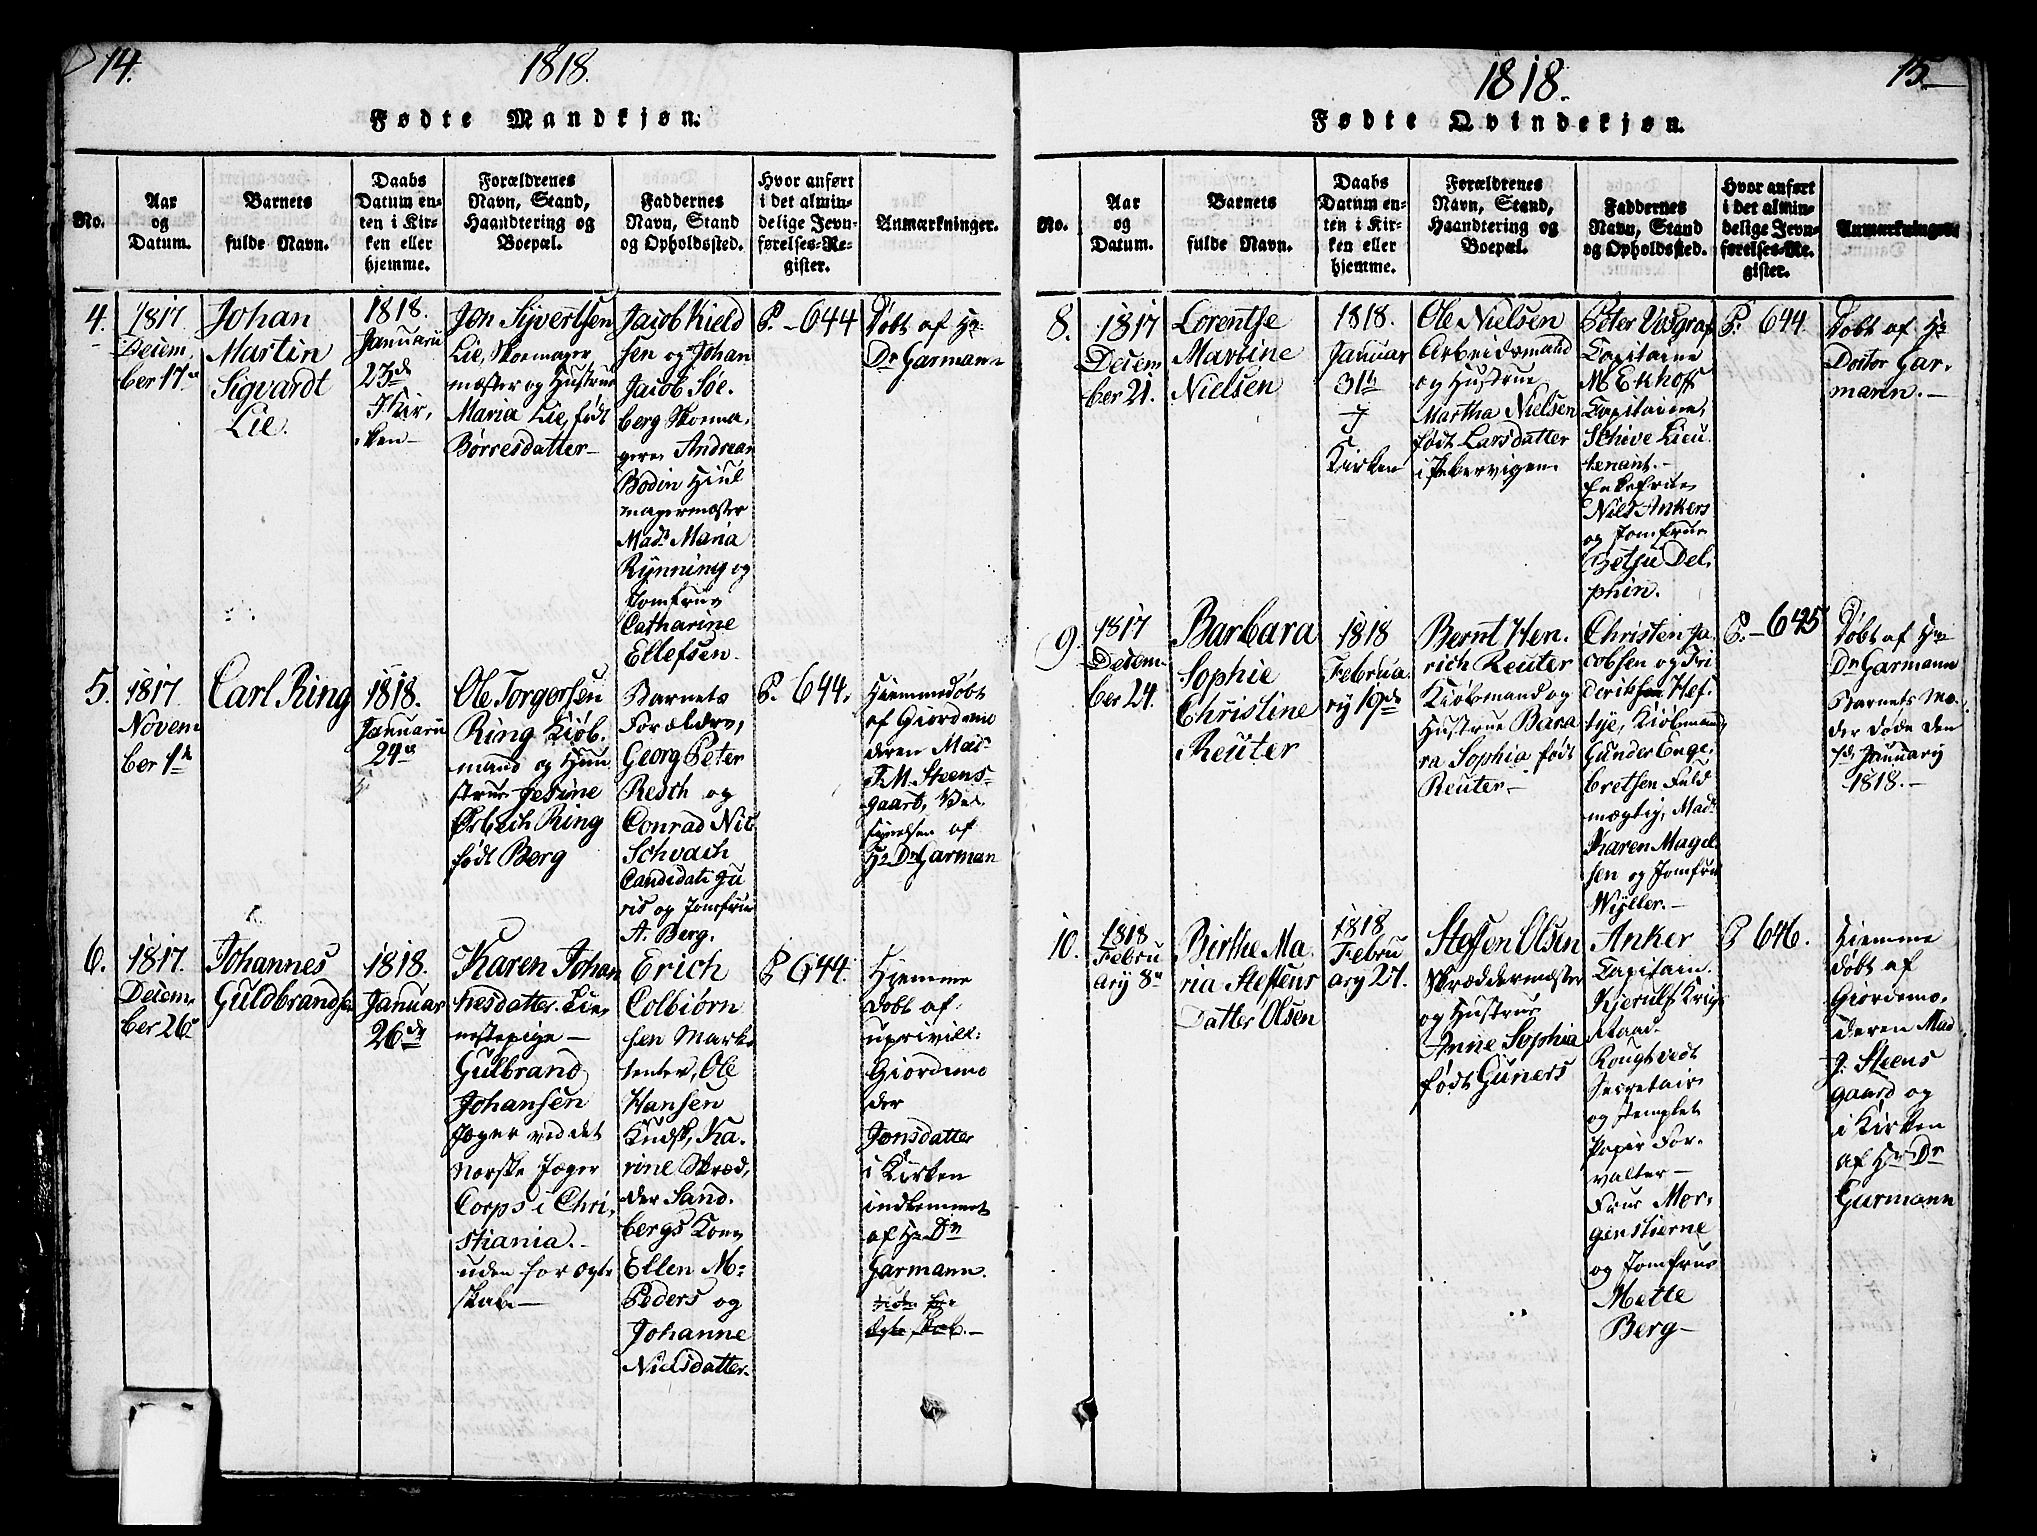 14.
1818.
Fødte Mandkjøn.
No.
Aar
og
Datum.
Barnets
fulde Navn.
Daabs
Datum en-
ten i Kir-
ken eller
hjemme.
Forældrenes
Navn, Stand,
Haandtering og
Boepæl.
Faddernes
Navn, Stand
og Opholdssted.
Hvor anført
i det almin-
delige Jevn-
førelses-Re-
gister.
Anmærkninger.
4.
1817
Decem
ber 17
Johan
Martin
Sigvardt
Lie.
1818.
Januari
23de
I Kir,
ken
Jon Sivertsen
Lie, Skomager
mæster og Hustrue
Maria Lie, født
Børresdatter
Jacob Kield
sen og Johan
Jacob Søe
berg Skoma,
gere Andreas
Bodin Hiul
magermæster
Mads Maria
Rynning og
Jomfrue
Catharine
Ellefsen.
P. - 644
Døbt af Hr
Dr Garmann
5.
1817
Novem
ber 1
Carl Ring
1818.
Januari
24
Ole Torgersen
Ring Kiøb.
mand og Huu
strue Jesine
Ørbech Ring
født Berg
Barnets
Forældre,
Georg Peter
Resch og
Conrad Nic
Schvach
Candidati Ju
ris og Jomfrue
A. Berg.
P. 644.
Hiemmedøbt
af Giordemo
deren Mad
T. M. Steens
gaard,
af
Hr Dr Garman
6.
1817.
Decem,
ber 26
Johannes
Guldbrandsen
1818.
Januar
26de
Karen Johan
nesdatter. Tie
nestepige
Gulbrand
Johansen
Jæger ved det
norske Jæger
Corps i Chri,
stiania.
uden for Ægte
skab
Erich
Colbiørn
sen Marke
tenter, Ole
Hansen
Kudsk, Ka,
rine Skræd,
der Sand.
bergs Kone
Ellen M
Peders og
Johanne
Nielsdatter.
P 644.
Hjemme
døbt af
uprivill:
Giordemo
der
Jonsdatter
i Kirken
indkommet
af Hr Dr
Garmann.
uden for
Ægte skab.
1818.
15
Fødte Qvindekjøn.
No.
Aar
og
Datum.
Barnets
fulde Navn.
Daabs
Datum en-
ten i Kir-
ken eller
hjemme.
Forældrenes
Navn, Stand,
Haandtering og
Boepæl.
Faddernes
Navn, Stand
og Opholdssted.
Hvor anført
i det almin-
delige Jevn-
førelses-Re-
gister.
Anmærkninger.
8.
1817
Decem
ber 21.
Lorentse
Martine
Nielsen
1818.
Januar
31
I
Kirken
Ole Nielsen
Arbeidsmand
og Hustrue
Martha Nielsen
født Larsdatter
i Pebervigen
Peter Vosgraf
Capitaine
M Ekhoff
Capitaine,
Schive Lieu
tenant.
Enkefrue
Niels Ankers
og Jomfrue
Betsy Del,
phin.
P. 644
Døbt af Hr
Doctor Gar.
mann.
9.
1817
Decem
ber 24.
Barbara
Sophie
Christine
Reuter
1818
Februa
ry 19de
Bernt Hen.
rich Reuter
Kiøbmand og
Hustrue Bara
ra Sophia født
Reuter
Christen Ja
cobsen og Fri
derik Hef,
tye, Kiøbmænd,
Gunder Enge,
bretsen Fuld
mægtig, Mads
Karen Magel
sen og Jomfrue
Wyller.
P. - 645
Døbt af Hr
Dr Garmann
Barnets Mo,
der døde den
Januarij
1818.
10.
1818
Febru
ary 8
Birthe Ma
ria Steffens
Datter Olsen
1818
Febru
ary 27.
Steffen Olsen
Skræddermæster
og Hustrue
Anne Sophia
født Guners
Anker
Capitain.
Kjerulf Krigs
Raad.
Rougtvedt
Secretair
og Stemplet
Papir For,
valter
Frue Mor,
genstierne
og Jomfrue
Mette
Berg
P 646.
Hiemme
døbt af
Giordemo.
deren Mad
J. Steens
gaard og
i Kirken
af Hr Dr
Garmann